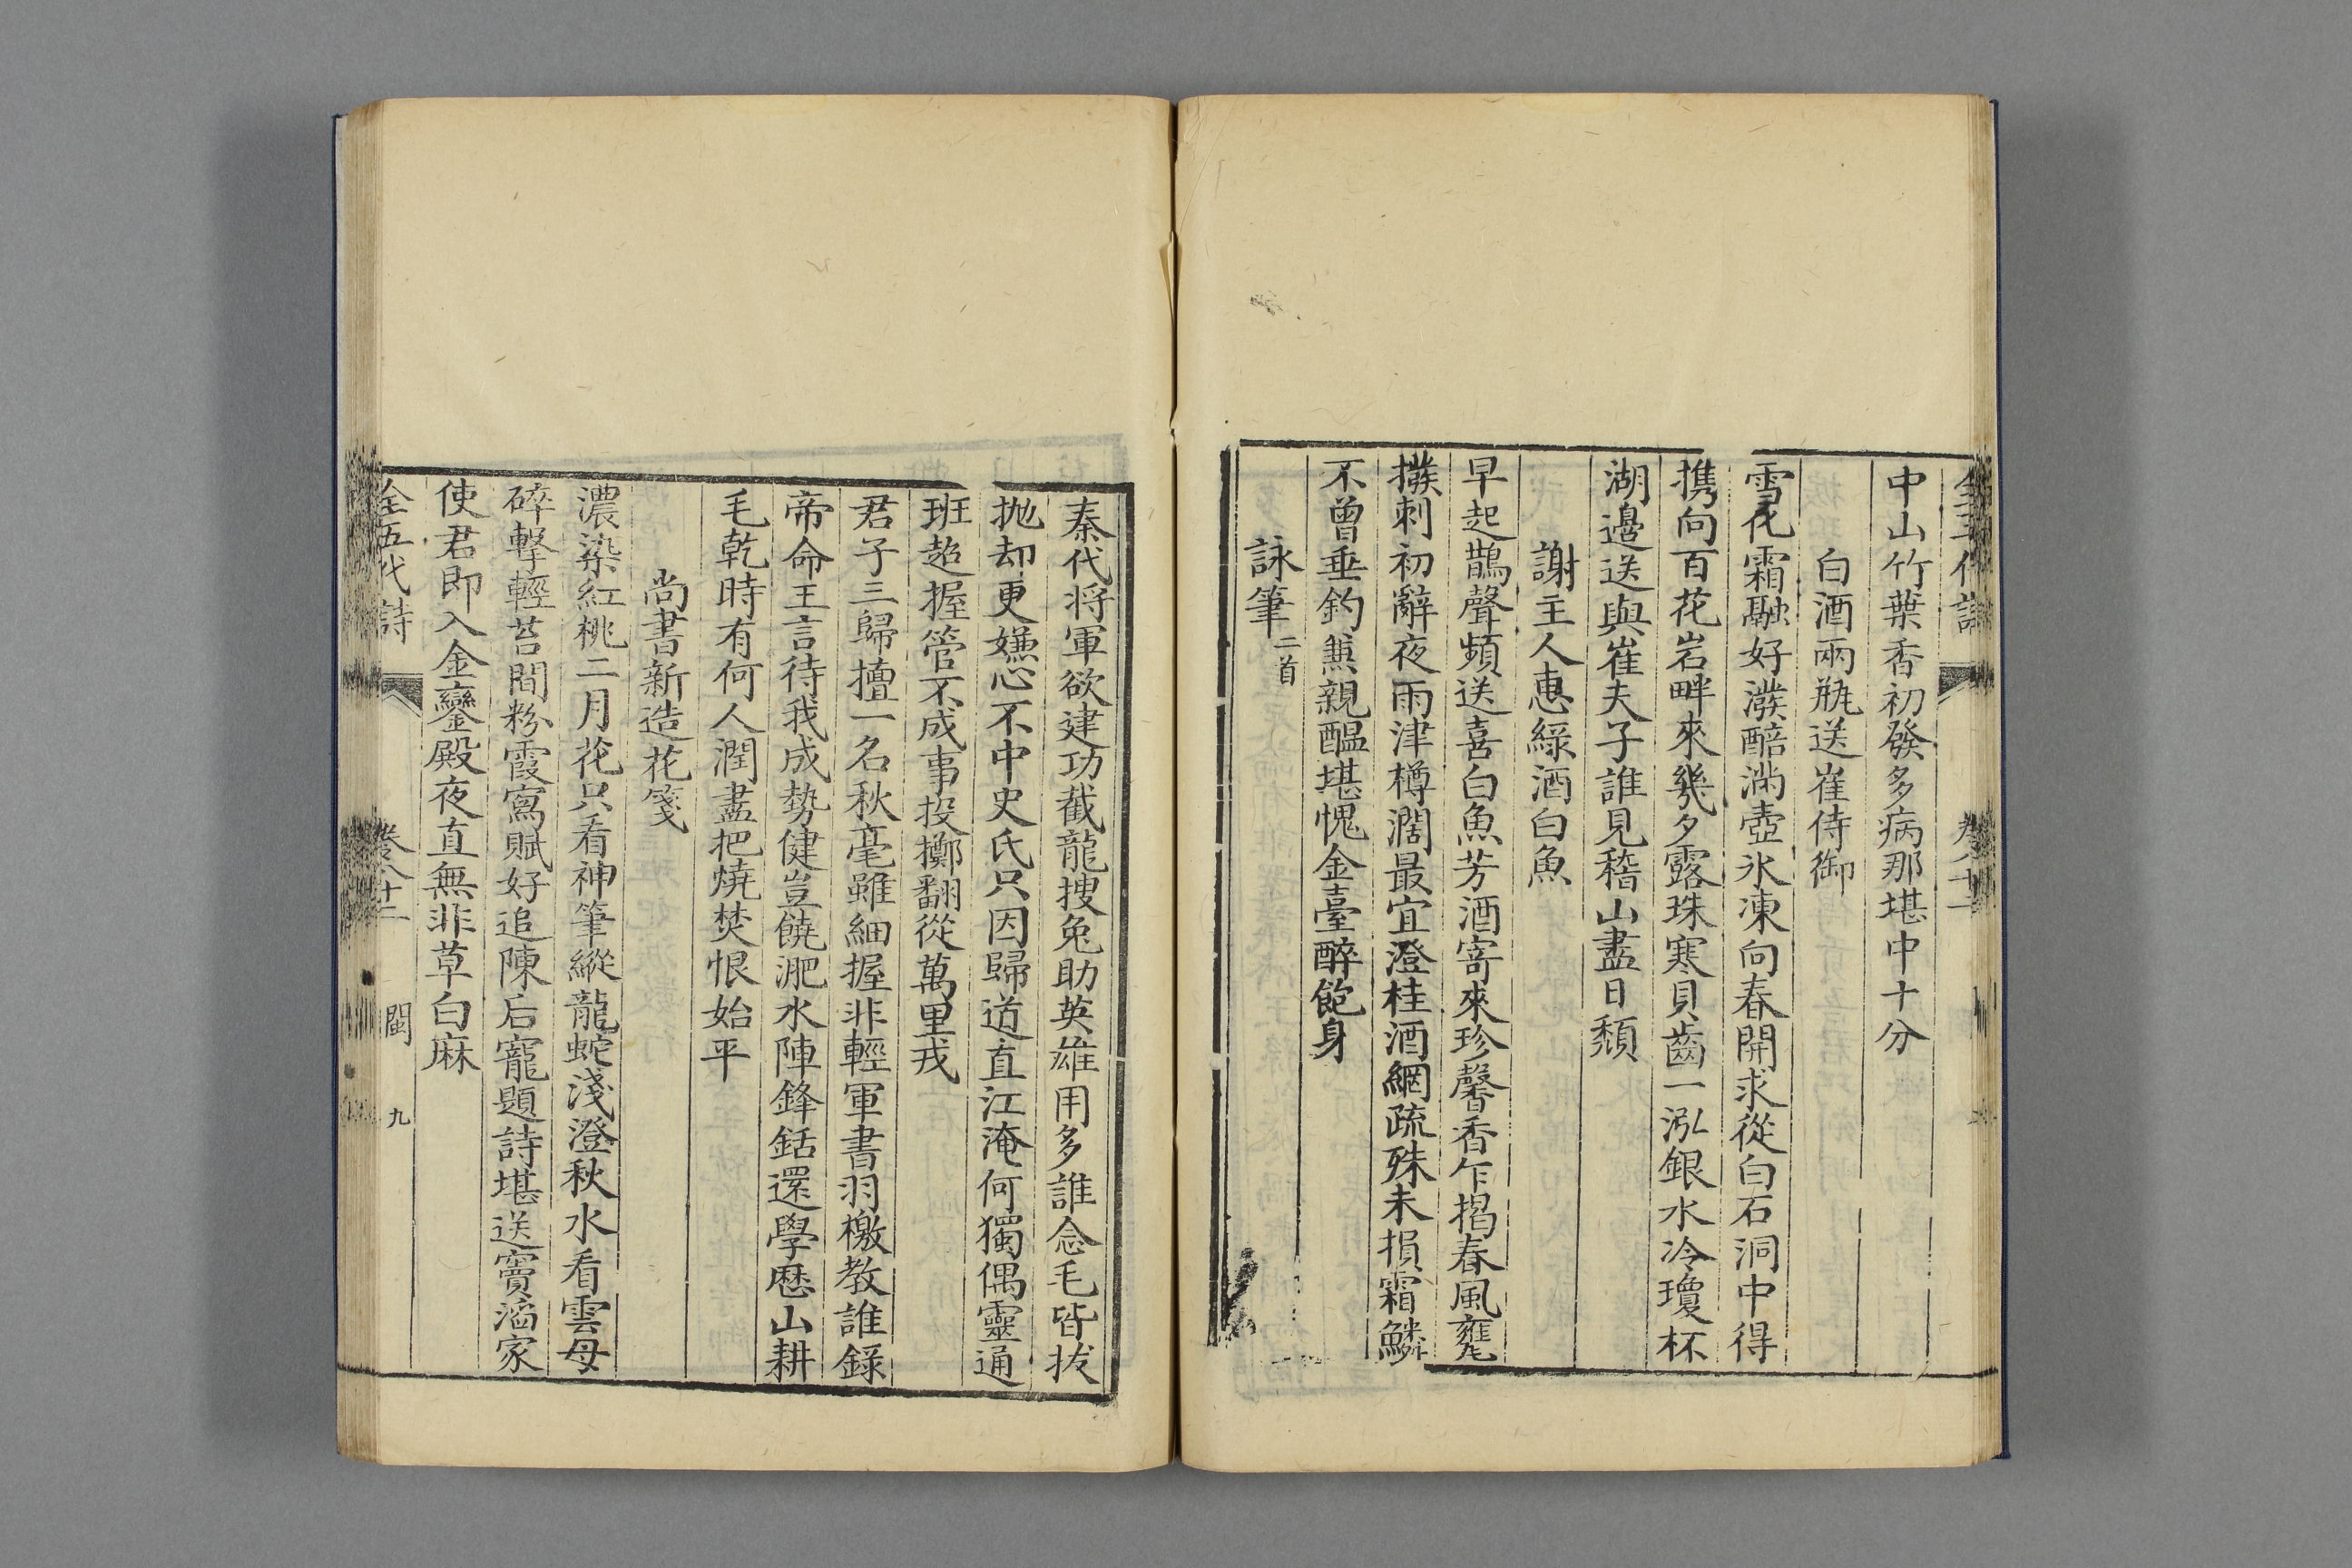 中山竹葉香初發多病那堪中十分
白酒兩瓶送崔侍御
雪化霜融好潑醅滿壺氷凍向春開求從白石洞中得
携向百花岩畔來幾夕露珠寒貝齒一泓銀水冷瓊杯
湖邊送與崔夫子誰見稽山盡日頹
謝主人惠綠酒白魚
早起鵲聲頻送喜白魚芳酒寄來珍馨香乍揭春風甕
撥剌初辭夜雨津樽濶最宜澄桂酒網疏殊未損霜鱗
不曾垂釣兼親醖堪愧金臺醉飽身
詠筆二首
秦代將軍欲建功截龍搜兔助英雄用多誰念毛皆拔
拋却更嫌心不中史氏只因歸道直江淹何獨偶靈通
班超握管不成事投擲翻從萬里戎
君子三歸擅一名秋毫雖細握非輕軍書羽檄教誰錄
帝命王言待我成勢健豈饒淝水陣鋒銛還學歷山耕
毛乾時有何人潤盡把燒焚恨始平
尚書新造花箋
濃染紅桃二月花只看神筆縱龍蛇淺澄秋水看雲母
碎擊輕苔間粉霞寫賦好追陳后寵題詩堪送竇滔家
使君即入金鑾殿夜直無非草白麻
全五代詩 卷八十二 閩 九